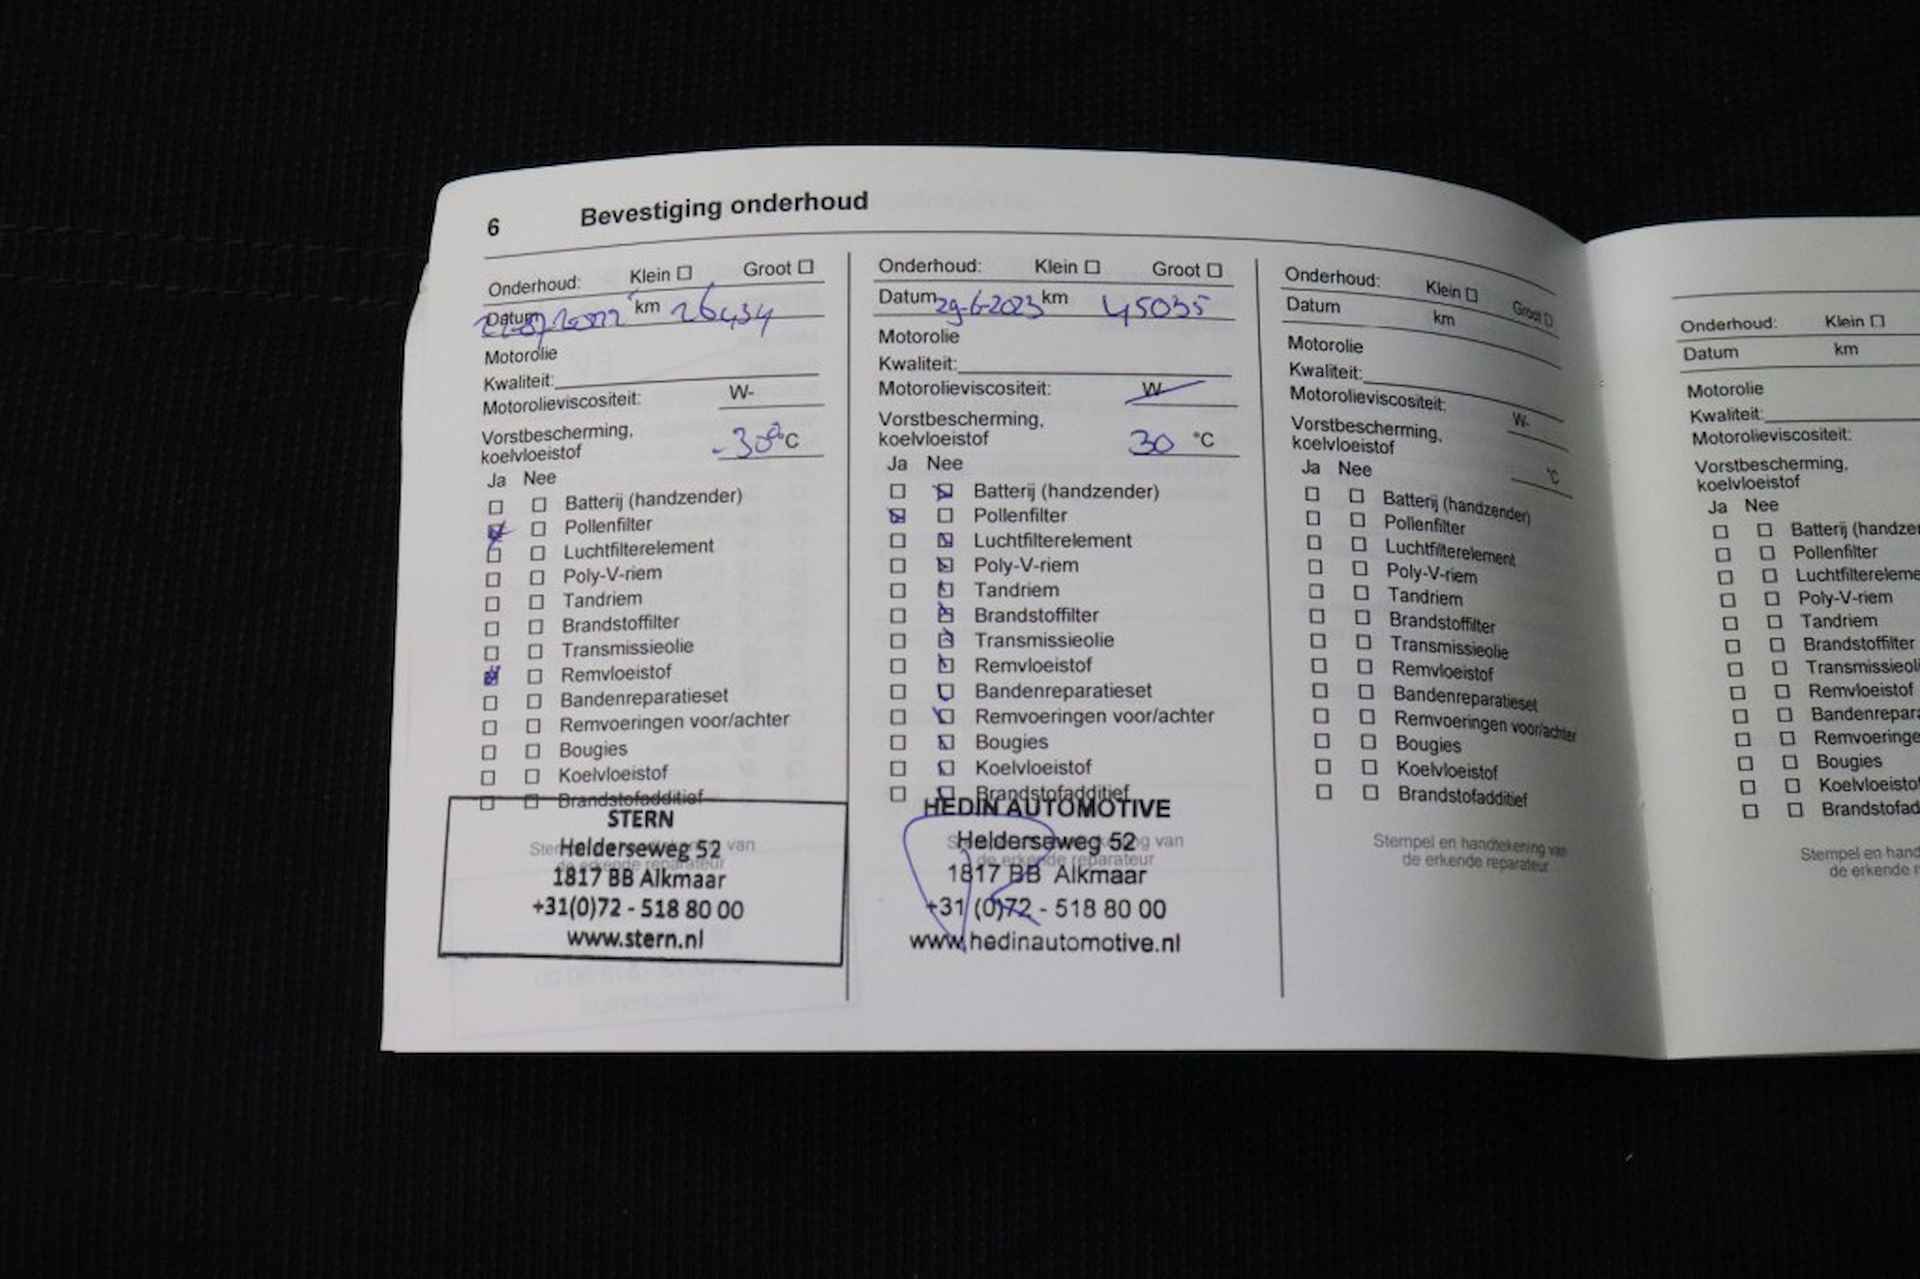 6 Bevestiging onderhoud
Onderhoud: Klein Groot
Datum km 26434
Motorolie
Kwaliteit:
Motorolieviscositeit: W-
Vorstbescherming,
koelvloeistof -30° °C
Ja Nee
Batterij (handzender)
Pollenfilter
Luchtfilterelement
Poly-V-riem
Tandriem
Brandstoffilter
Transmissieolie
Remvloeistof
Bandenreparatieset
Remvoeringen voor/achter
Bougies
Koelvloeistof
Brandstofadditief
STERN
Helderseweg 52
1817 BB Alkmaar
+31(0)72 - 518 80 00
www.stern.nl
Onderhoud: Klein Groot
Datum 29-6-2023 km 45035
Motorolie
Kwaliteit:
Motorolieviscositeit: W-
Vorstbescherming,
koelvloeistof 30 °C
Ja Nee
Batterij (handzender)
Pollenfilter
Luchtfilterelement
Poly-V-riem
Tandriem
Brandstoffilter
Transmissieolie
Remvloeistof
Bandenreparatieset
Remvoeringen voor/achter
Bougies
Koelvloeistof
Brandstofadditief
HEDIN AUTOMOTIVE
Helderseweg 52
1817 BB Alkmaar
+31 (0)72 - 518 80 00
www.hedinautomotive.nl
Onderhoud: Klein Groot
Datum km
Motorolie
Kwaliteit:
Motorolieviscositeit: W-
Vorstbescherming,
koelvloeistof °C
Ja Nee
Batterij (handzender)
Pollenfilter
Luchtfilterelement
Poly-V-riem
Tandriem
Brandstoffilter
Transmissieolie
Remvloeistof
Bandenreparatieset
Remvoeringen voor/achter
Bougies
Koelvloeistof
Brandstofadditief
Stempel en handtekening van
de erkende reparateur
Onderhoud: Klein
Datum km
Motorolie
Kwaliteit:
Motorolieviscositeit:
Vorstbescherming,
koelvloeistof
Ja Nee
Batterij (handze
Pollenfilter
Luchtfiltereleme
Poly-V-riem
Tandriem
Brandstoffilter
Transmissieoli
Remvloeistof
Bandenrepara
Remvoeringe
Bougies
Koelvloeisto
Brandstofad
Stempel en hand
de erkende r